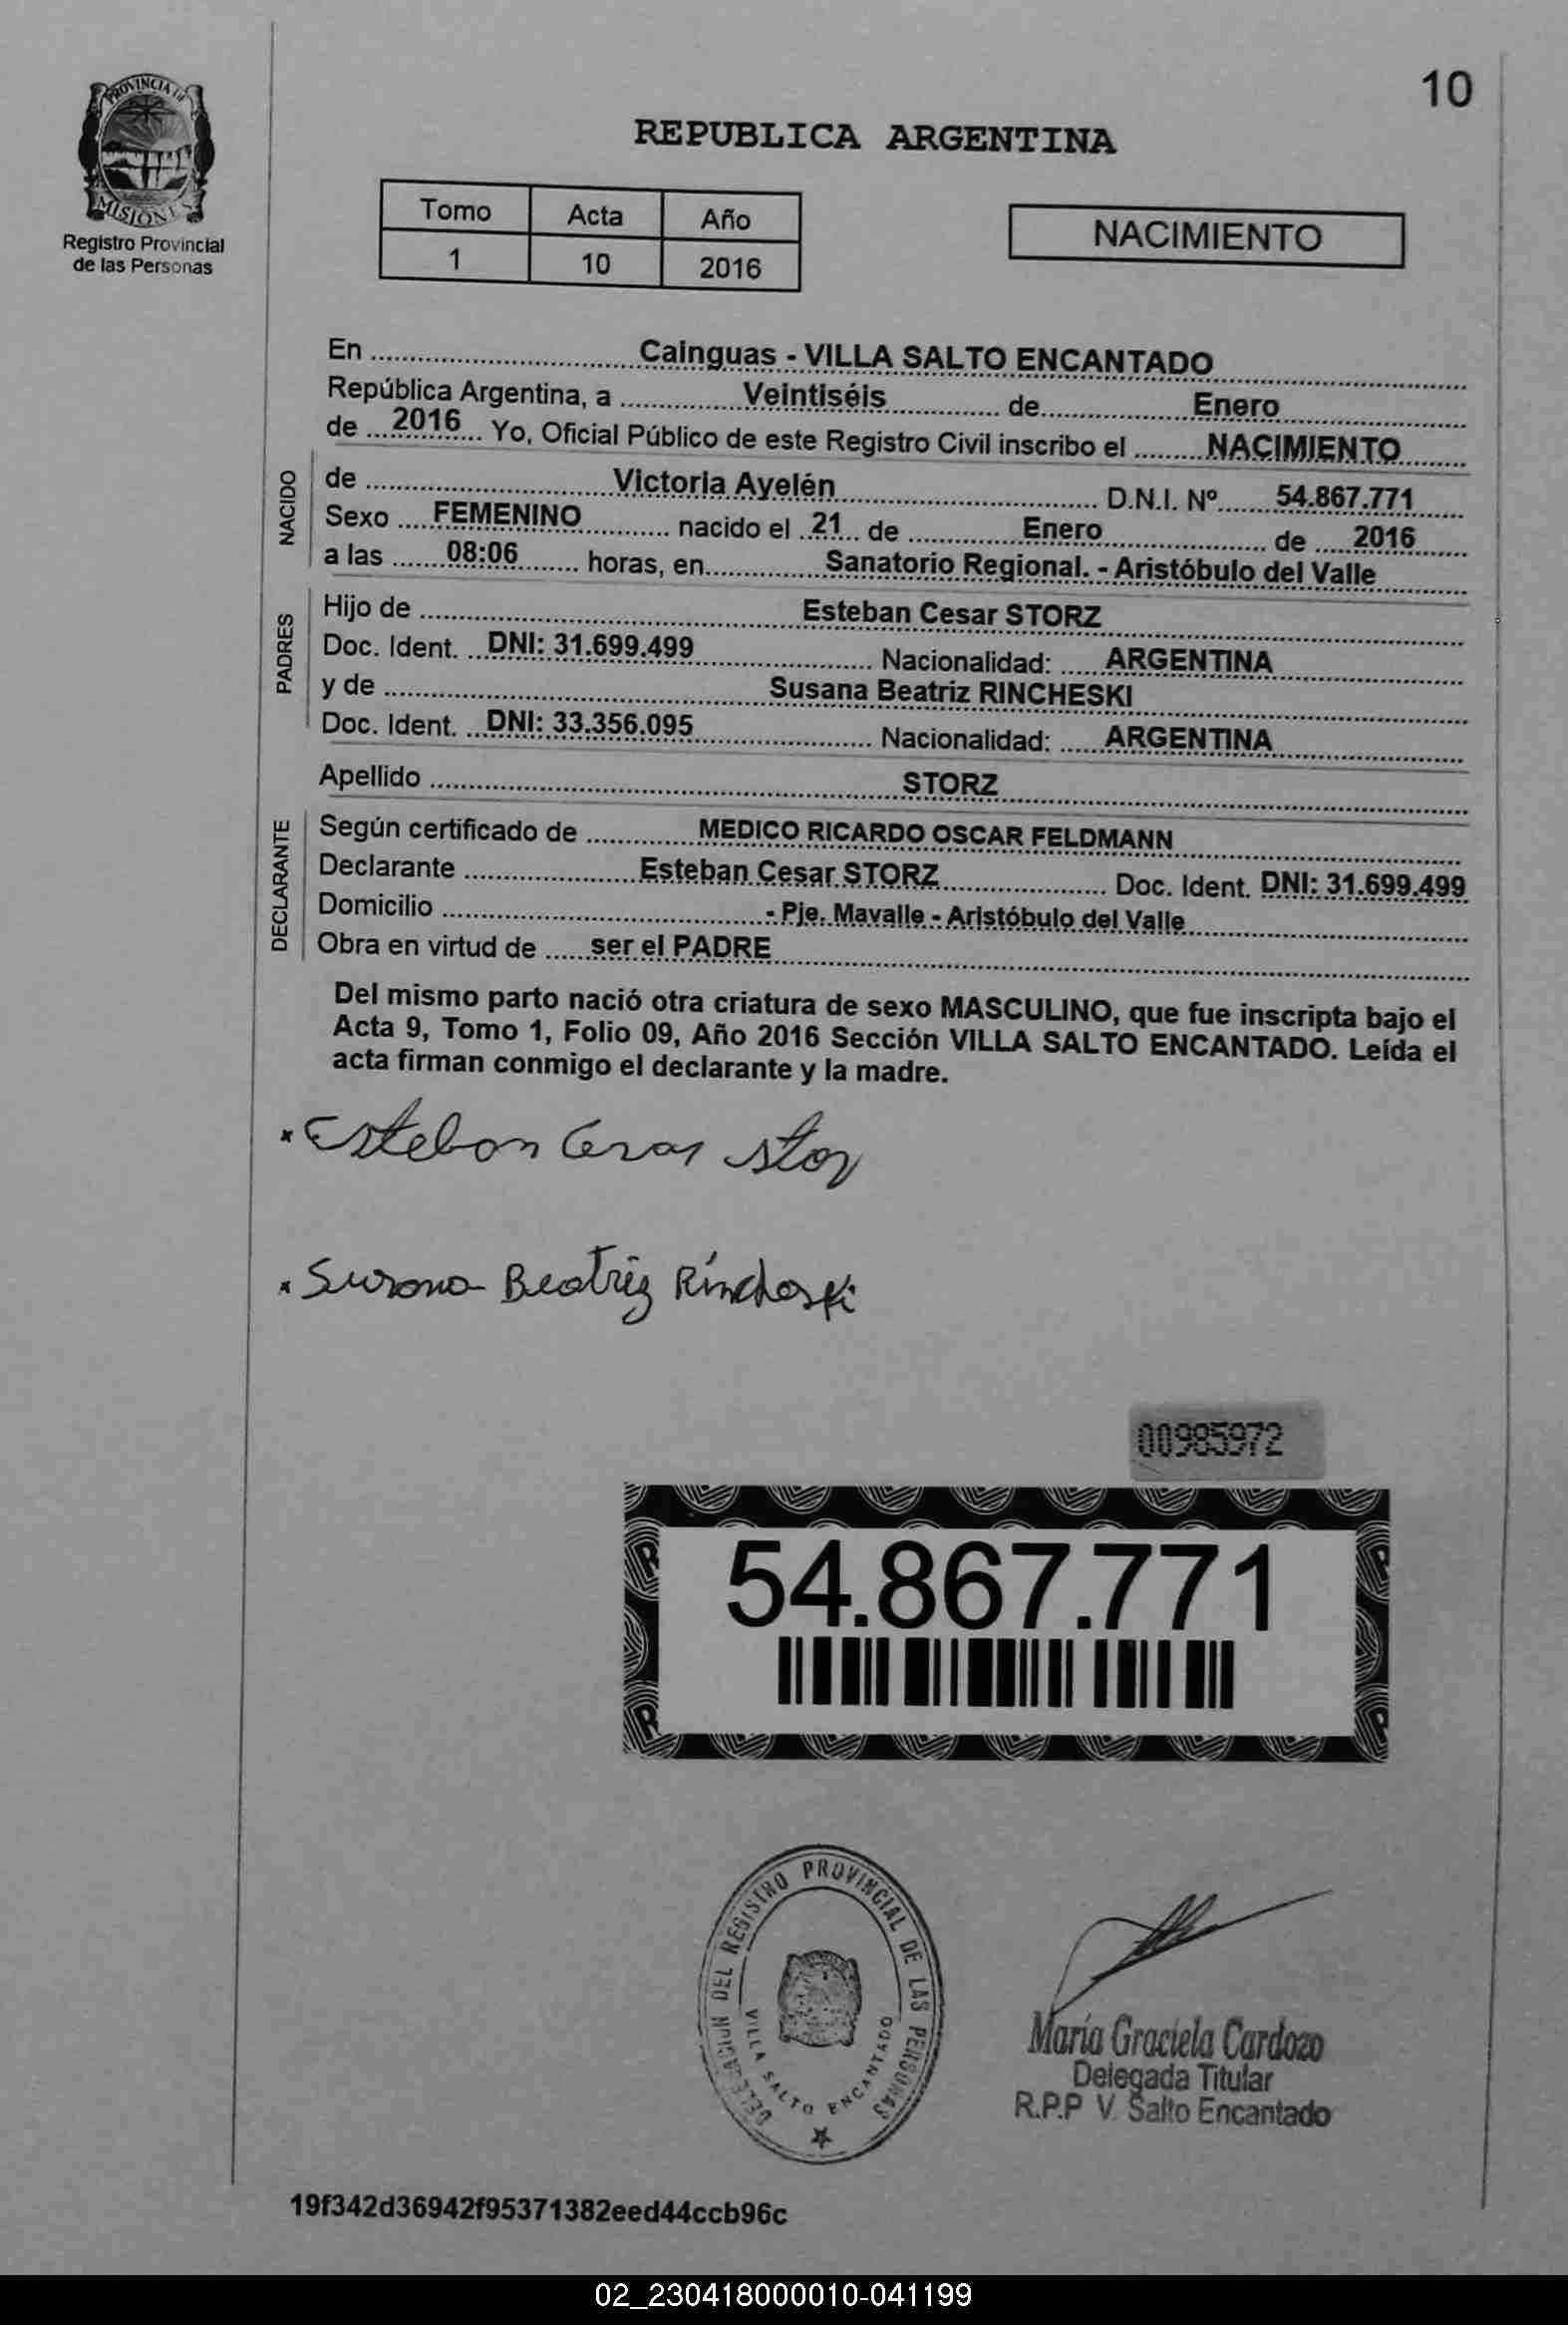 10
PROVINCIA DE
MISIONES
Registro Provincial
de las Personas
REPUBLICA ARGENTINA
Tomo Acta Año
1 10 2016
NACIMIENTO
En Cainguas - VILLA SALTO ENCANTADO
República Argentina, a Veintiséis de Enero
de 2016 Yo, Oficial Público de este Registro Civil inscribo el NACIMIENTO
NACIDO
de Victoria Ayelén D.N.I. Nº 54.867.771
Sexo FEMENINO nacido el 21 de Enero de 2016
a las 08:06 horas, en Sanatorio Regional. - Aristóbulo del Valle
PADRES
Hijo de Esteban Cesar STORZ
Doc. Ident. DNI: 31.699.499 Nacionalidad: ARGENTINA
y de Susana Beatriz RINCHESKI
Doc. Ident. DNI: 33.356.095 Nacionalidad: ARGENTINA
Apellido STORZ
DECLARANTE
Según certificado de MEDICO RICARDO OSCAR FELDMANN
Declarante Esteban Cesar STORZ Doc. Ident. DNI: 31.699.499
Domicilio - Pje. Mavalle - Aristóbulo del Valle
Obra en virtud de ser el PADRE
Del mismo parto nació otra criatura de sexo MASCULINO, que fue inscripta bajo el
Acta 9, Tomo 1, Folio 09, Año 2016 Sección VILLA SALTO ENCANTADO. Leída el
acta firman conmigo el declarante y la madre.
Esteban Cesar Storz
Susana Beatriz Rincheski
00985972
54.867.771
DELEGACION DEL REGISTRO PROVINCIAL DE LAS PERSONAS
VILLA SALTO ENCANTADO
María Graciela Cardozo
Delegada Titular
R.P.P V. Salto Encantado
19f342d36942f95371382eed44ccb96c
02_230418000010-041199